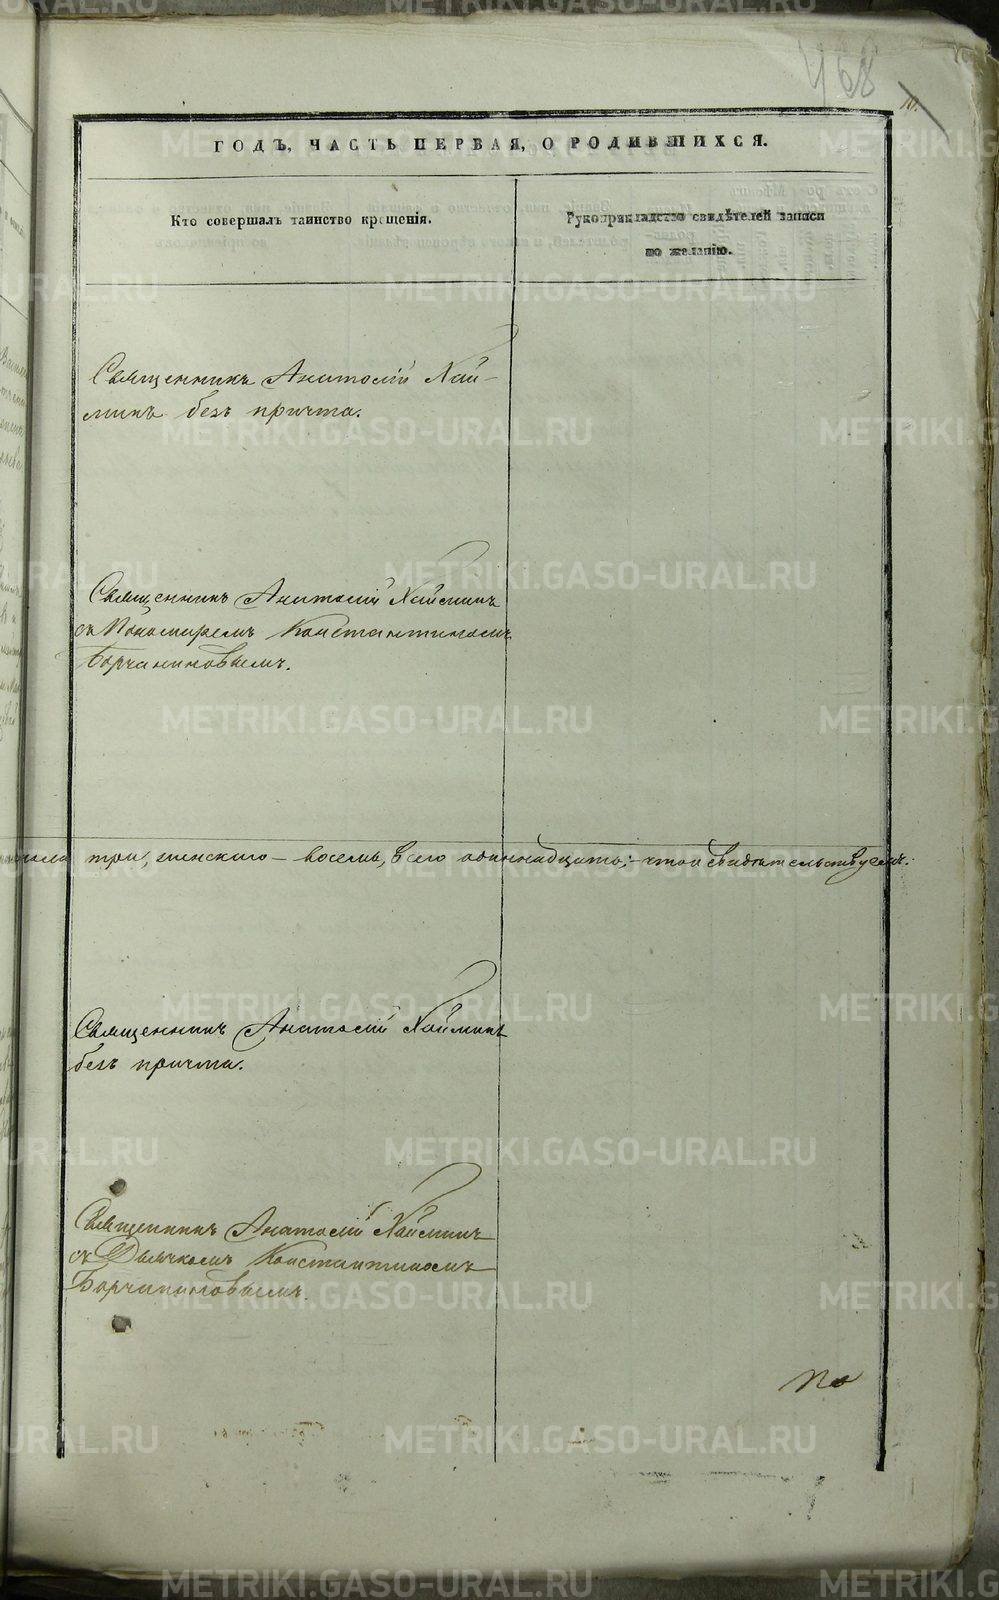 468
10.
ГОДЪ, ЧАСТЬ ПЕРВАЯ, О РОДИВШИХСЯ.
Кто совершалъ таинство крещенія.
Рукоприкладство свидѣтелей записи
по желанію.
Священникъ Анатолій Хай-
минъ безъ причта.
Священникъ Анатолій Хайминъ
съ Пономаремъ Константиномъ
Борчаниновымъ.
три, женскаго – восемь, всего одиннадцать; – что и свидѣтельствуемъ:
Священникъ Анатолій Хайминъ
безъ причта.
Священникъ Анатолій Хайминъ
съ Дьячкомъ Константиномъ
Борчаниновымъ.
По
METRIKI.GASO-URAL.RU